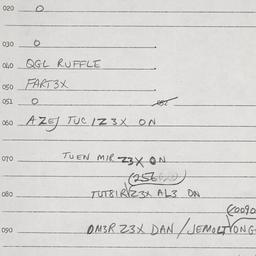 020 0
030 0
040 QGL RUFFLE
050 FART3X
051 0
060 AZEJ TUC 1Z3X ON
070 TUEN MIR Z3X ON
(256
080 TUT81R Z3X AL3 ON
(0090
090 OM3R Z3X DAN / JEMOLT YONG